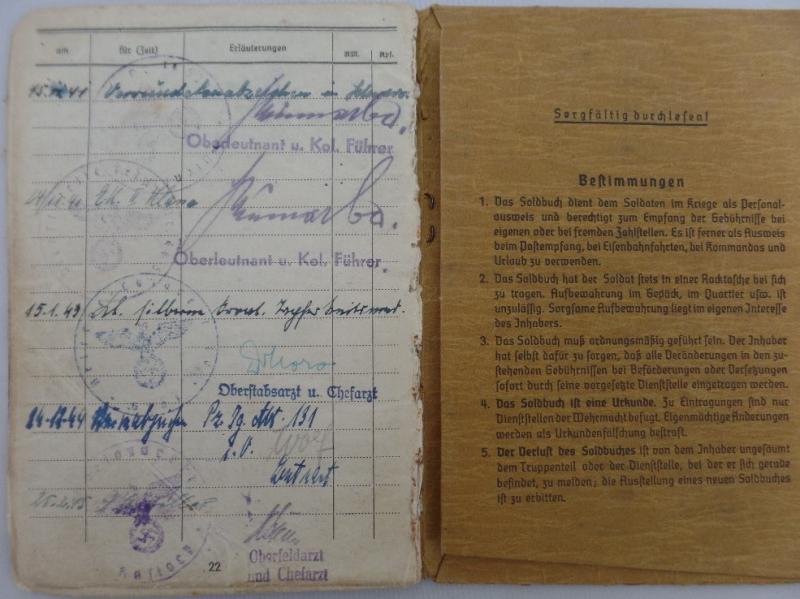 am
für (Zeit)
Erläuterungen
RM.
Rpf.
15. 41 Verwundetenabzeichen in Schwarz.
Oberleutnant u. Kol. Führer
E.K. II Klasse
Oberleutnant u. Kol. Führer.
15.1.43 silberne kroat. Tapferkeitsmed.
Oberstabsarzt u. Chefarzt
24.12.44 Pz. Jg. Abt. 191
Oberfeldarzt
und Chefarzt
22
Sorgfältig durchlesen!
Bestimmungen
1. Das Soldbuch dient dem Soldaten im Kriege als Personal-
ausweis und berechtigt zum Empfang der Gebührnisse bei
eigenen oder bei fremden Zahlstellen. Es ist ferner als Ausweis
beim Postempfang, bei Eisenbahnfahrten, bei Kommandos und
Urlaub zu verwenden.
2. Das Soldbuch hat der Soldat stets in einer Rocktasche bei sich
zu tragen. Aufbewahrung im Gepäck, im Quartier usw. ist
unzulässig. Sorgsame Aufbewahrung liegt im eigenen Interesse
des Inhabers.
3. Das Soldbuch muß ordnungsmäßig geführt sein. Der Inhaber
hat selbst dafür zu sorgen, daß alle Veränderungen in den zu-
stehenden Gebührnissen bei Beförderungen oder Versetzungen
sofort durch seine vorgesetzte Dienststelle eingetragen werden.
4. Das Soldbuch ist eine Urkunde. Zu Eintragungen sind nur
Dienststellen der Wehrmacht befugt. Eigenmächtige Änderungen
werden als Urkundenfälschung bestraft.
5. Der Verlust des Soldbuches ist von dem Inhaber ungesäumt
dem Truppenteil oder der Dienststelle, bei der er sich gerade
befindet, zu melden; die Ausstellung eines neuen Soldbuches
ist zu erbitten.